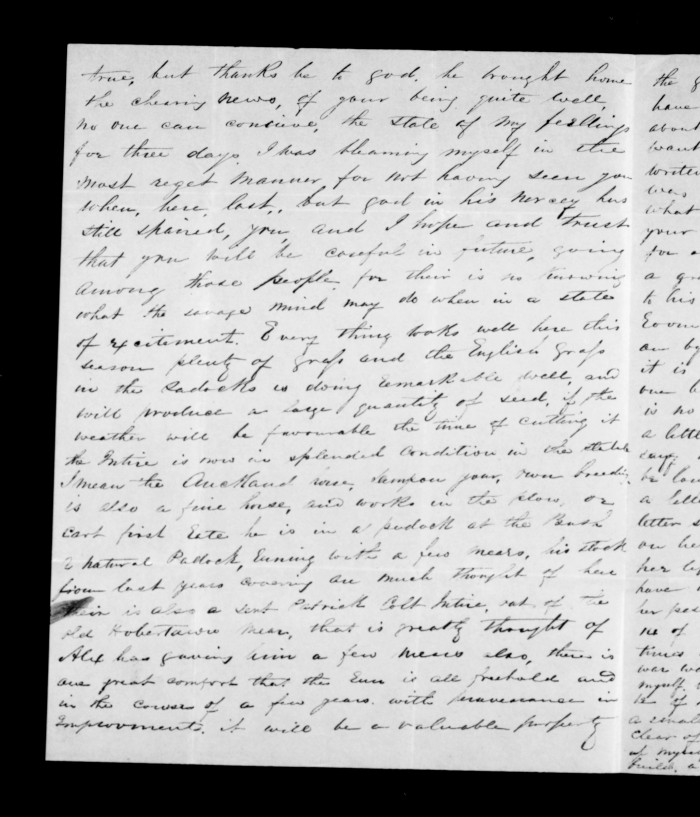 true, but thanks be to god. he brought home
the chearing news, of your being quite well,
no one can concieve, the state of my feellings
for three days, I was blaming myself in the
most reget manner, for not having seen you
when, here, last,, but god in his mercey has
still spaired, you and I hope and trust
that you will be carefull in future, going
among those people, for their is no knowing
what the savage mind may do when in a state
of excitement. Every thing looks well here this
season plenty of grass and the English Grass
in the Padocks is doing remarkable well, and
will produce a large quantity of seed, if the
weather will be favourable the time of cutting it
the Intire is now in splended Condition, in the stable
I mean the Auckland horse, your, own breeding
is also a fine horse, and works in the plow, or
cart first Rate he is in a padock at the Bush
a natural Paddock, Running with a few mears, his stock
from last years covering are much thought of here
their is also a Sint Patrick Colt Intire, out, of the
old Hobertown mear, that is greatly thought of
Alex has gaving him a few mears also, there is
one great comfort that the Run is all freehold and
in the course of a few years. with perseverance in
Improvments. it will be a valuable property
the
have
about
want
was
what
your
for
to his
it is
one
is no
a lette
a lette
letter
her
have
her
times
myself
a small
clear of